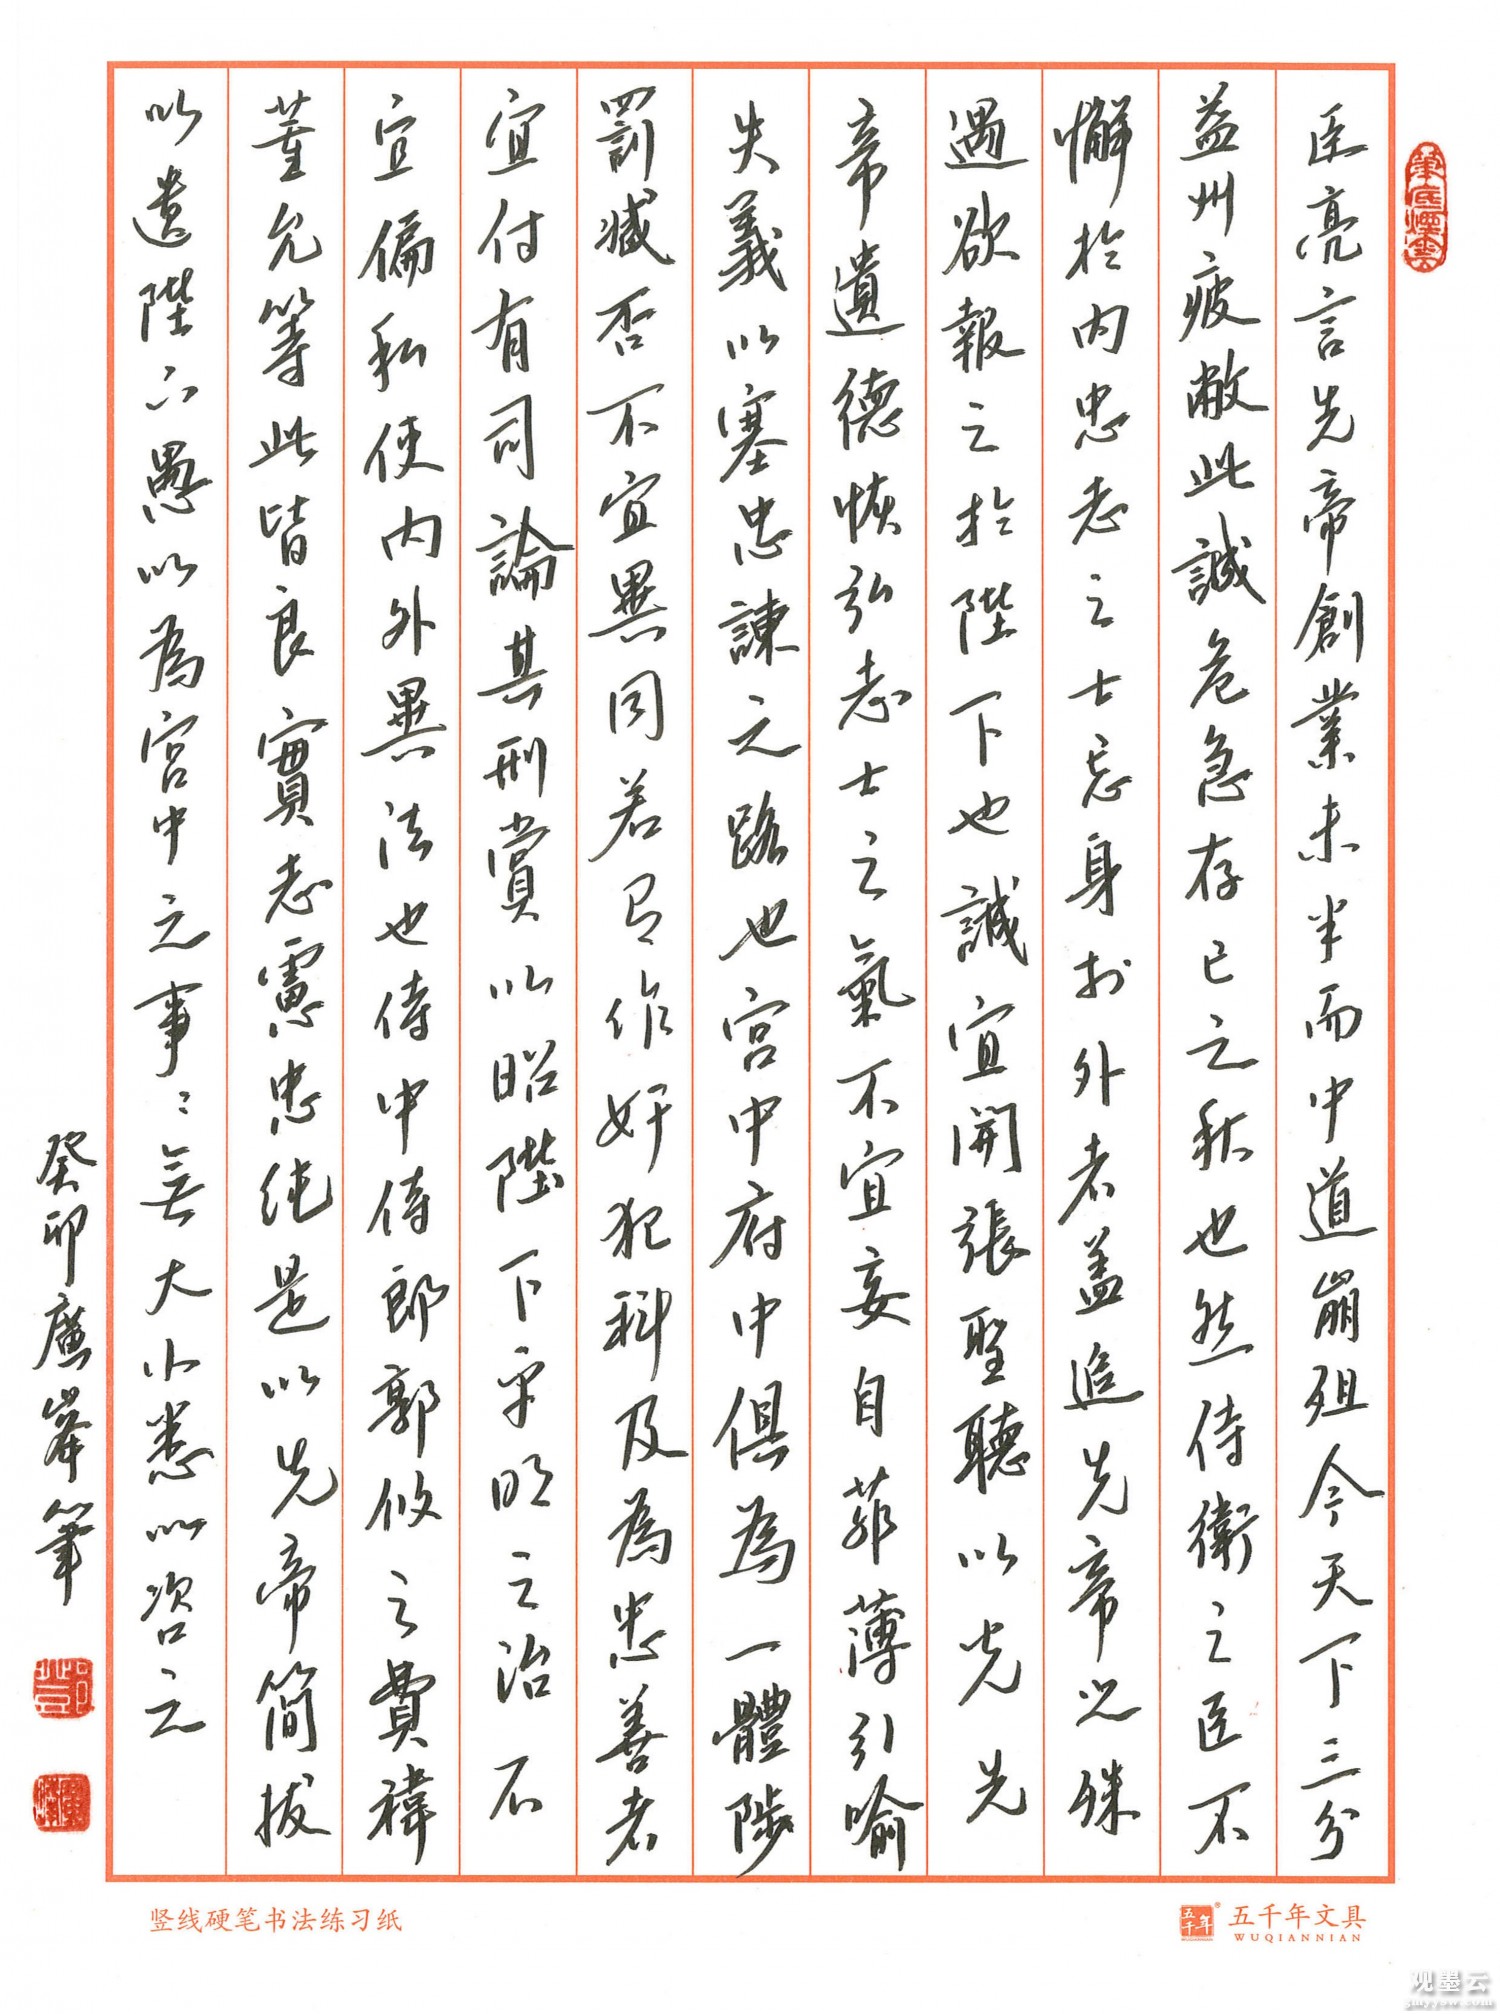 筆底煙雲
臣亮言先帝創業未半而中道崩殂今天下三分
益州疲敝此誠危急存亡之秋也然侍衛之臣不
懈於内忠志之士忘身於外者蓋追先帝之殊
遇欲報之於陛下也誠宜開張聖聽以光先
帝遺德恢弘志士之氣不宜妄自菲薄引喻
失義以塞忠諫之路也宮中府中俱為一體陟
罰臧否不宜異同若有作奸犯科及為忠善者
宜付有司論其刑賞以昭陛下平明之治不
宜偏私使内外異法也侍中侍郎郭攸之費禕
董允等此皆良實志慮忠純是以先帝簡拔
以遺陛下愚以為宮中之事〻無大小悉以咨之
癸卯廣峯筆
竖线硬笔书法练习纸
五千年
五千年文具
WUQIANNIAN
观墨云